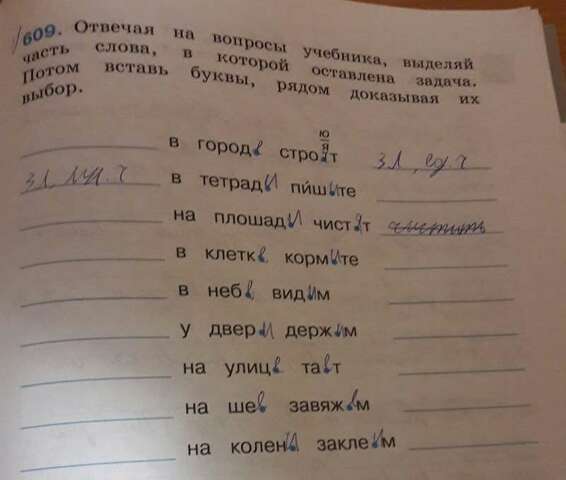 609. Отвечая на вопросы учебника, выделяй
часть слова, в которой оставлена задача.
Потом вставь буквы, рядом доказывая их
выбор.
ю
я
в городе строят 3 л., ед. ч
3 л., ед. ч в тетради пи́шите
на площади чистят чистить
в клетке кормите
в небе видим
у двери держим
на улице тает
на шее завяжем
на колени заклеим